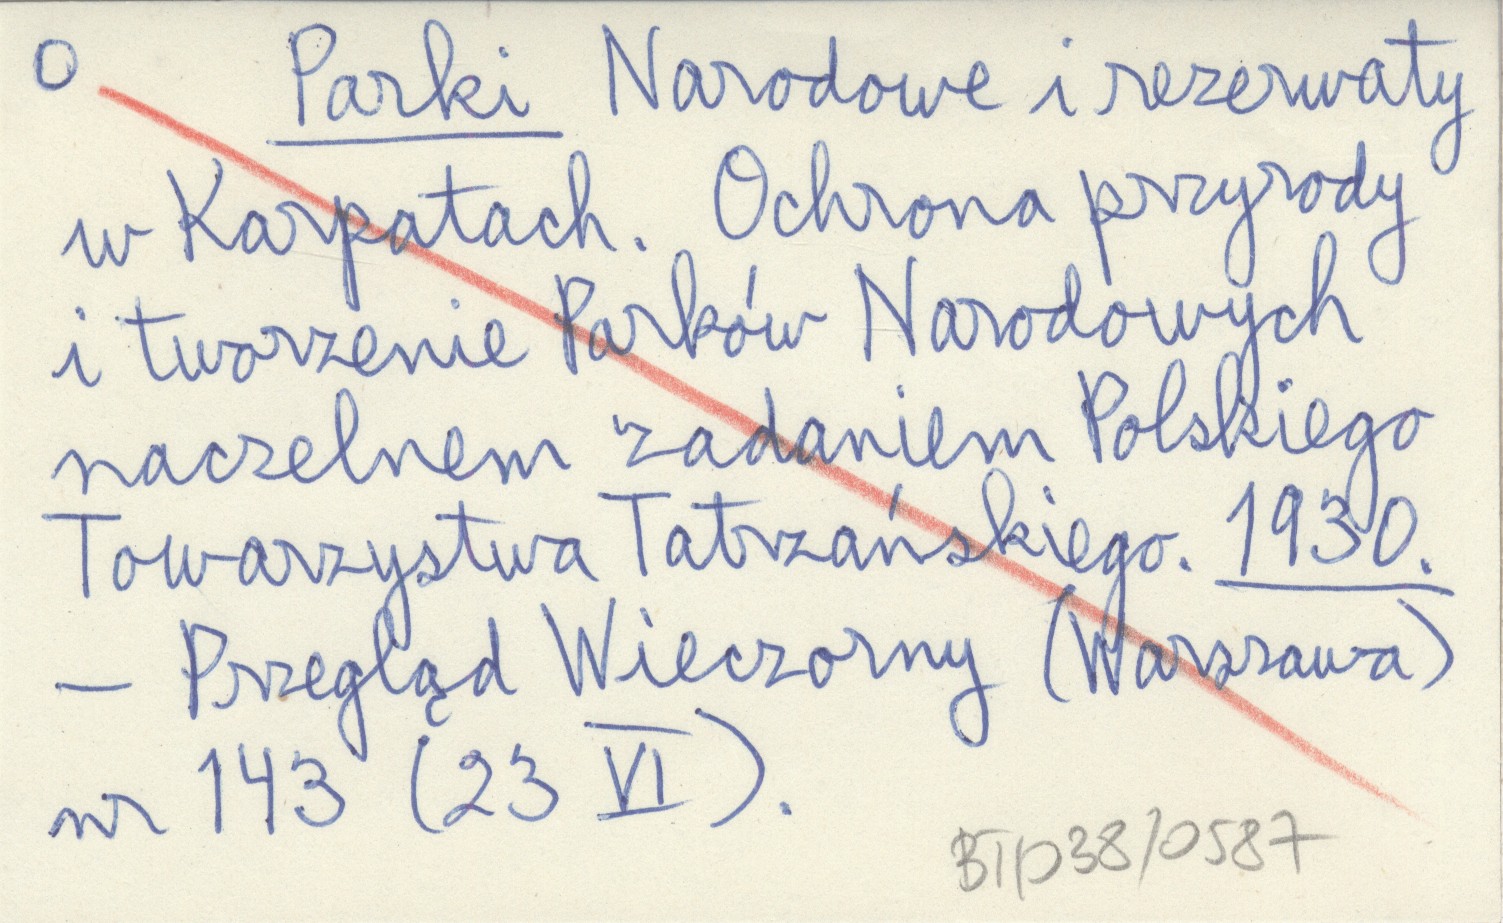 O Parki Narodowe i rezerwaty
w Karpatach. Ochrona przyrody
i tworzenie Parków Narodowych
naczelnem zadaniem Polskiego
Towarzystwa Tatrzańskiego. 1930.
— Przegląd Wieczorny (Warszawa)
nr 143 (23 VI).
BTp38/0587